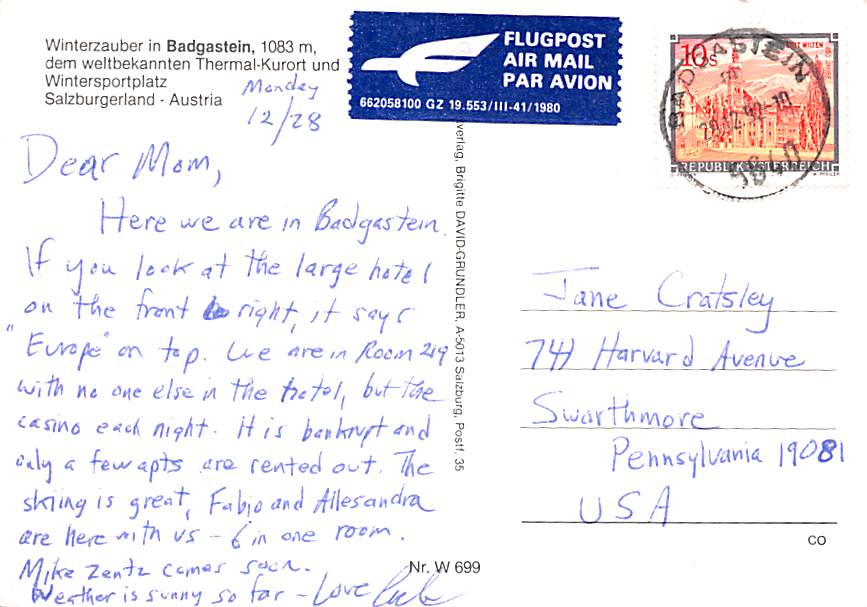 Winterzauber in Badgastein, 1083 m,
dem weltbekannten Thermal-Kurort und
Wintersportplatz
Salzburgerland - Austria
Monday
12/28
Dear Mom,
Here we are in Badgastein.
If you look at the large hotel
on the front right, it says
"Europe" on top. We are in Room 219
with no one else in the hotel, but the
casino each night. It is bankrupt and
only a few apts are rented out. The
skiing is great, Fabio and Allesandra
are here with us - 6 in one room.
Mike Zentz comes soon.
Weather is sunny so far - Love
verlag, Brigitte DAVID-GRUNDLER, A-5013 Salzburg, Postf. 35
Nr. W 699
FLUGPOST
AIR MAIL
PAR AVION
662058100 GZ 19.553/III-41/1980
10s
STIFT WILTEN
REPUBLIK ÖSTERREICH
BADGASTEIN
28.12.92-10
5640
Jane Cratsley
741 Harvard Avenue
Swarthmore
Pennsylvania 19081
USA
CO